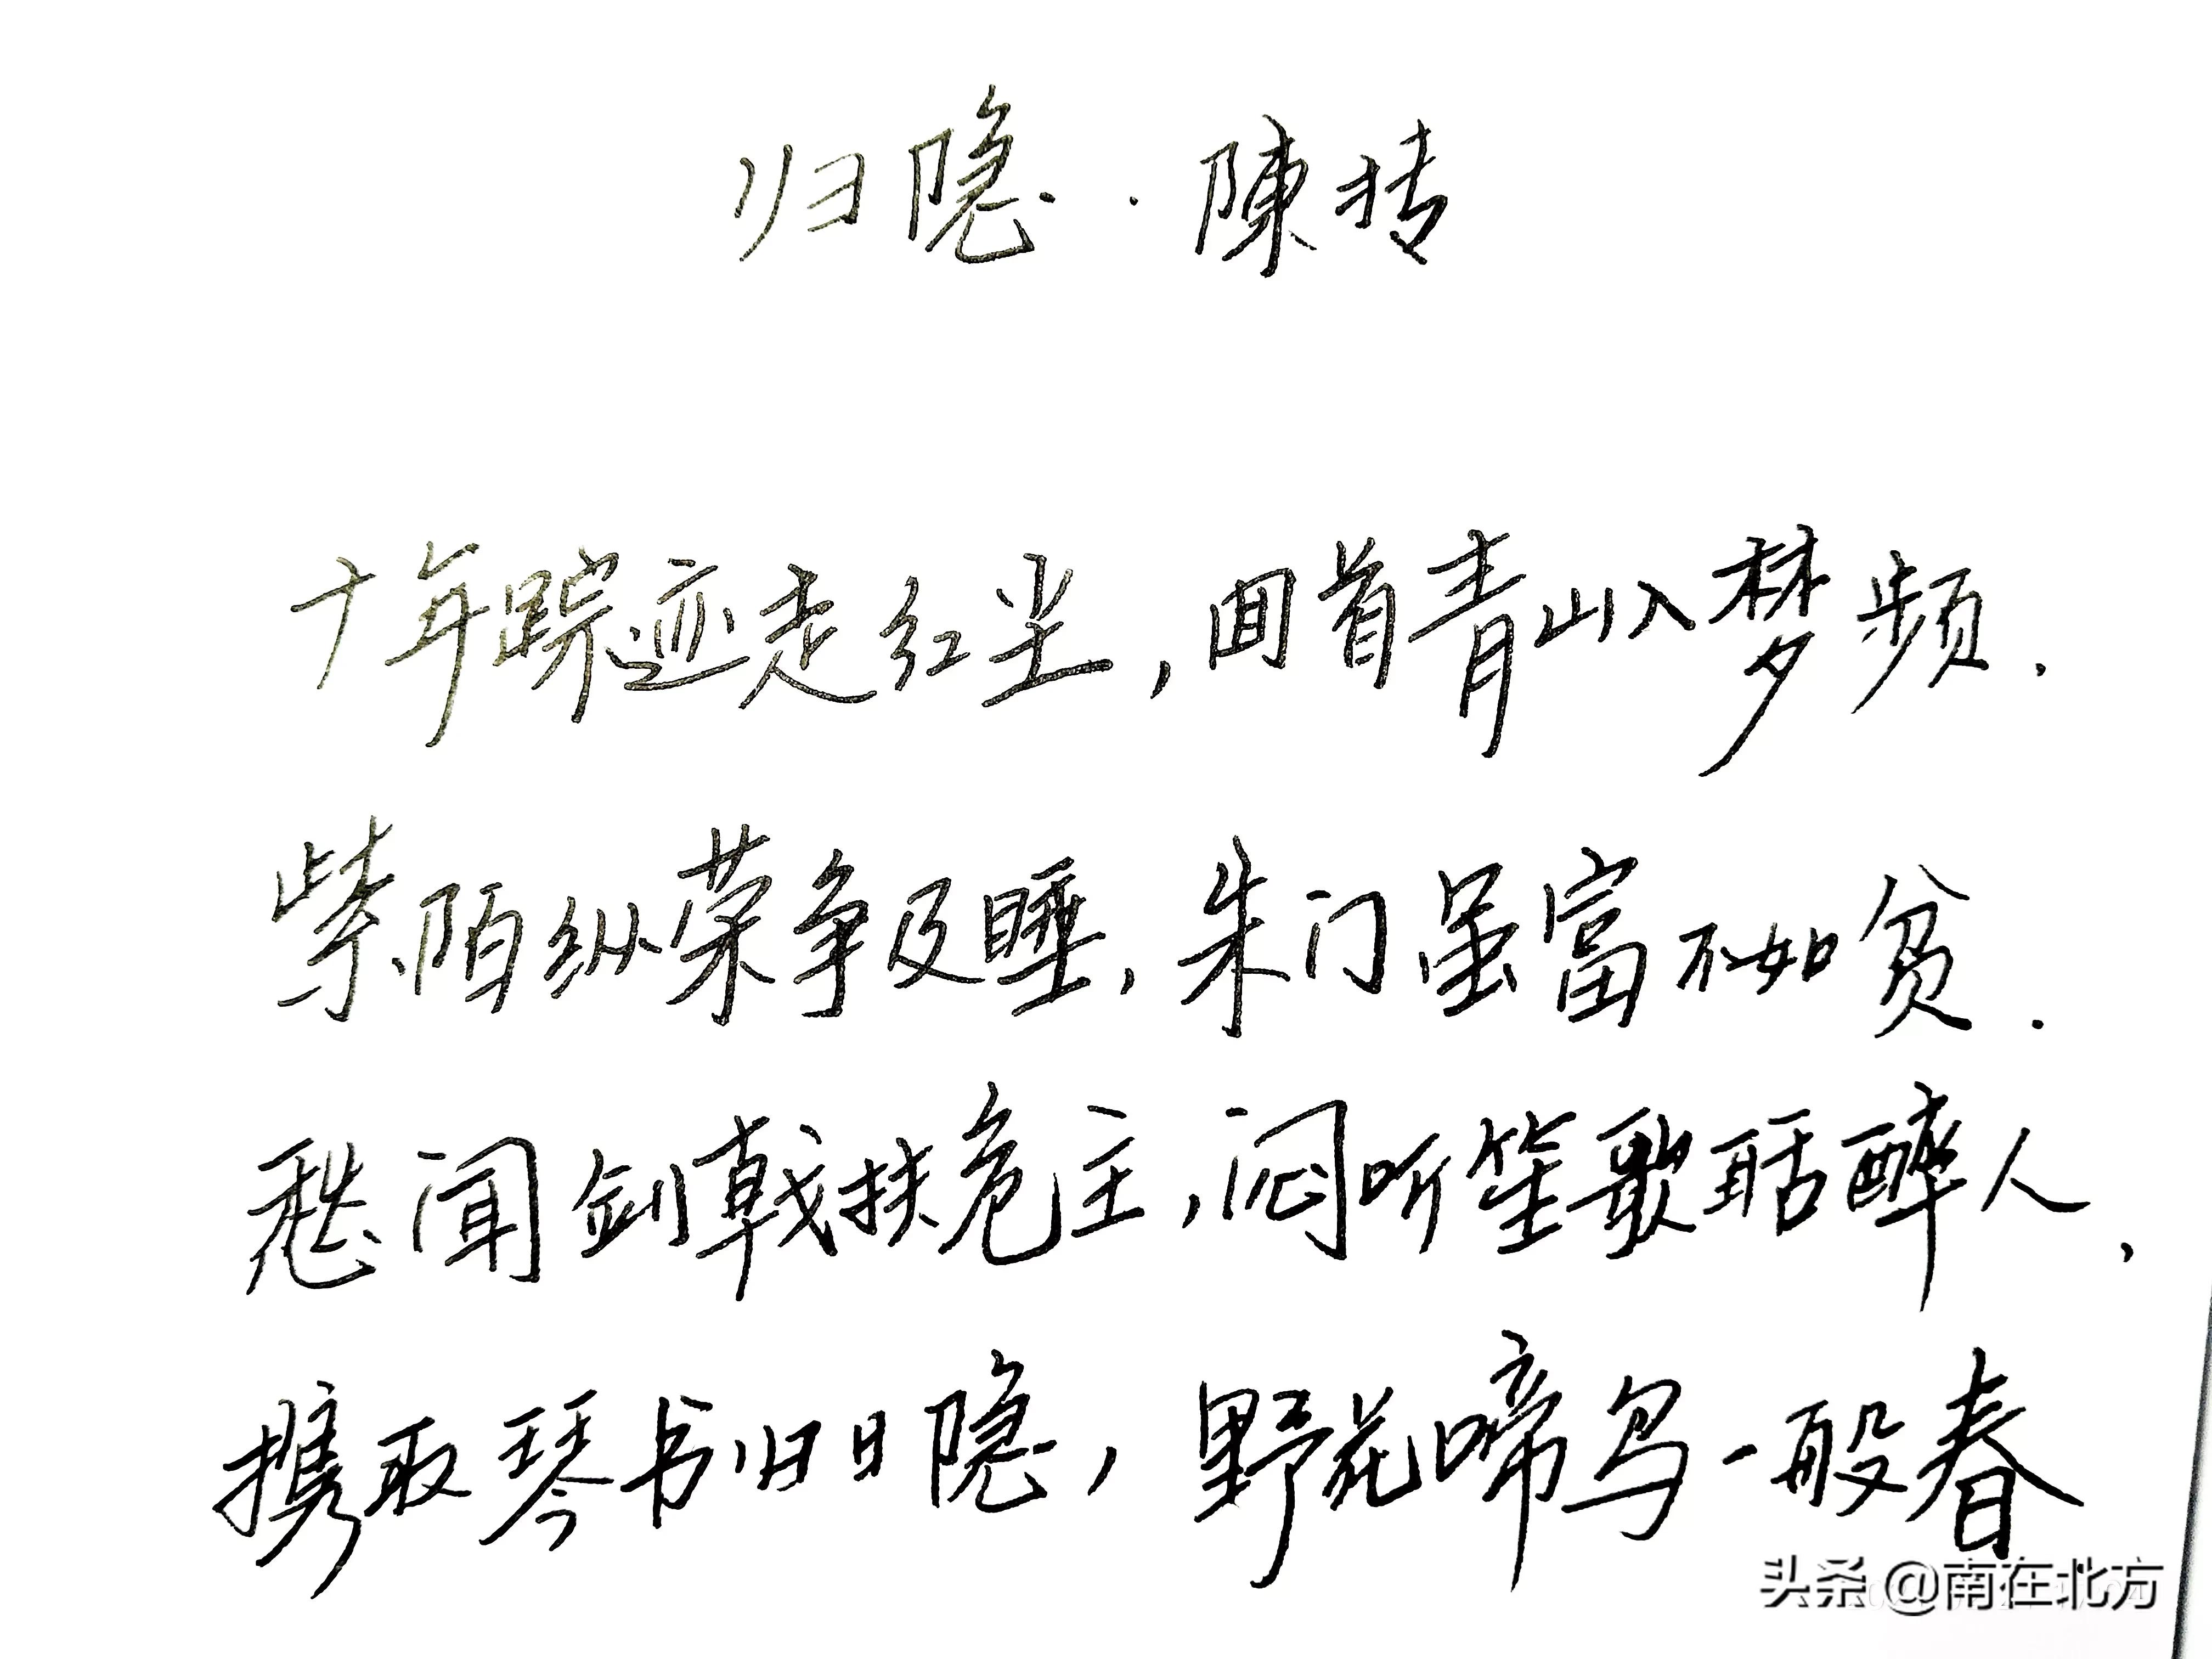 归隐··陳抟
十年踪迹走红尘，回首青山入梦频．
紫陌纵荣争及睡，朱门虽富不如贫．
愁闻剑戟扶危主，闷听笙歌聒醉人，
携取琴书归旧隐，野花啼鸟一般春
头条 @南在北方